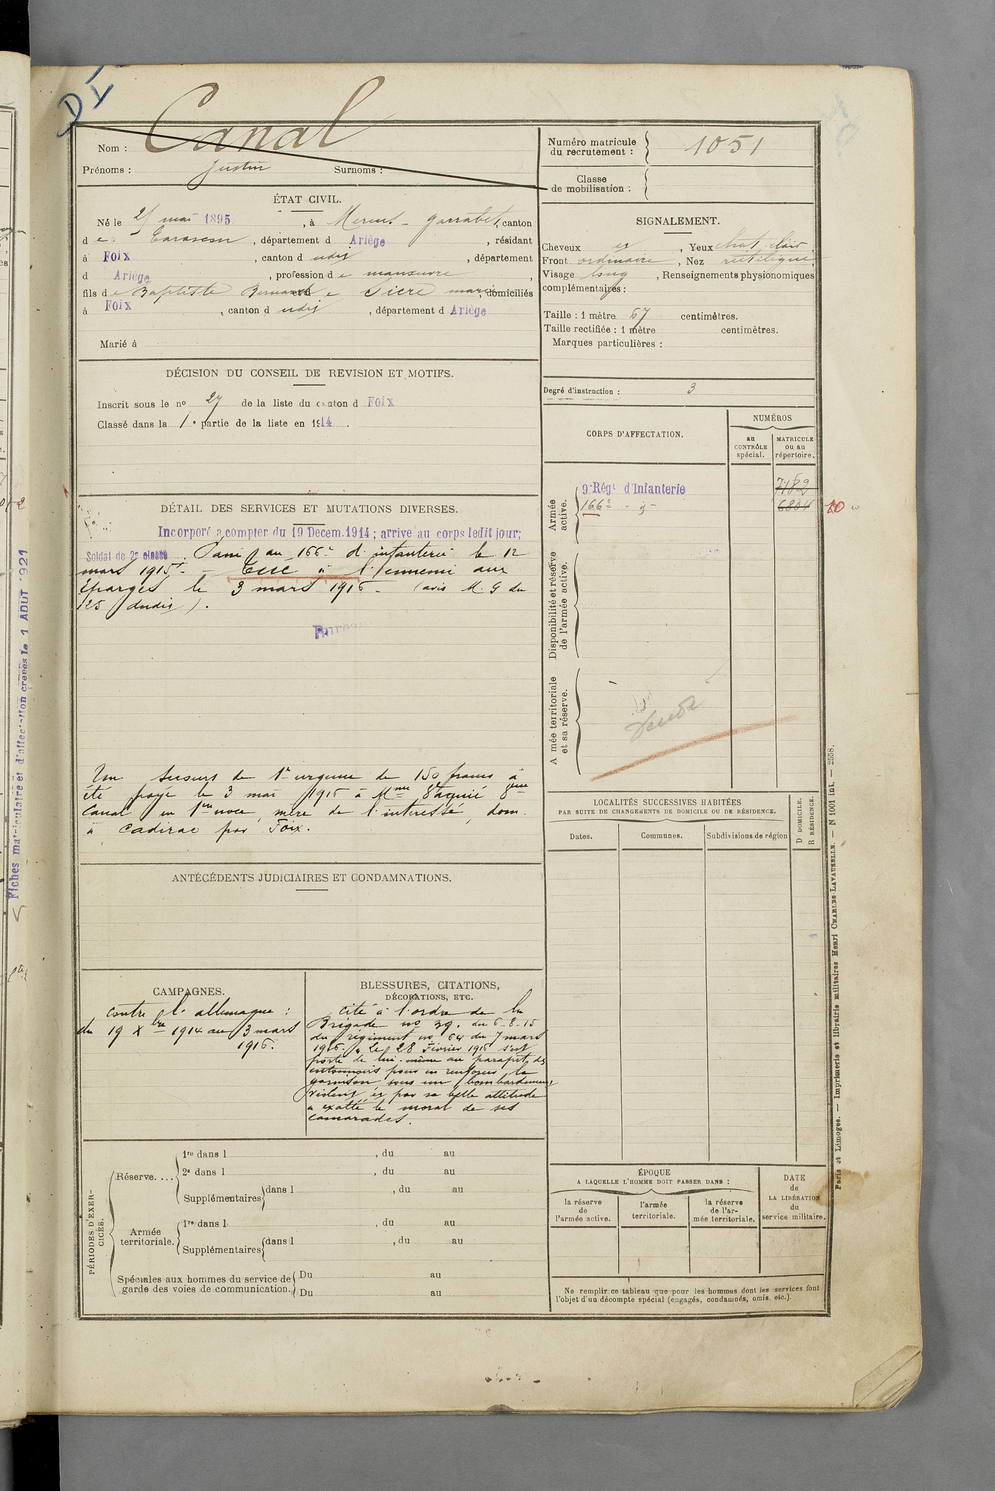 DI
Nom : Canal
Prénoms : Justin Surnoms :
Numéro matricule du recrutement : 1051
Classe de mobilisation :
ÉTAT CIVIL.
Né le 25 mai 1895, à Mercus - Garrabet, canton
de Tarascon, département d Ariège, résidant
à Foix, canton d udit, département
d Ariège, profession de manœuvre,
fils de Baptiste Bernard et de Sicre Marie, domiciliés
à Foix, canton d udit, département d Ariège
Marié à
SIGNALEMENT.
Cheveux, Yeux chat. clair
Front ordinaire, Nez rectiligne
Visage long, Renseignements physionomiques
complémentaires :
Taille : 1 mètre 67 centimètres.
Taille rectifiée : 1 mètre centimètres.
Marques particulières :
Degré d'instruction : 3
DÉCISION DU CONSEIL DE REVISION ET MOTIFS.
Inscrit sous le no 27 de la liste du canton d Foix
Classé dans la 1e partie de la liste en 1914.
DÉTAIL DES SERVICES ET MUTATIONS DIVERSES.
Incorporé à compter du 19 Décem. 1914 ; arrivé au corps ledit jour;
Soldat de 2e classe. Passé au 166e d'infanterie le 12
mars 1915. - Tué à l'ennemi aux
Éparges le 3 mars 1916 - (avis M. G du
125 dudit).
Bureau
Un secours de 1re urgence de 150 francs a
été payé le 3 mai 1916 à Mme
Canal en 1re noce, mère de l'intéressé, dom.
à Cadirac par Foix.
CORPS D'AFFECTATION.
NUMÉROS
au CONTRÔLE spécial.
MATRICULE ou au répertoire.
Armée active.
9e Régt d'Infanterie 7182
166e - d° - 6884
20
Disponibilité et réserve de l'armée active.
Armée territoriale et sa réserve.
LOCALITÉS SUCCESSIVES HABITÉES
PAR SUITE DE CHANGEMENTS DE DOMICILE OU DE RÉSIDENCE.
Dates. Communes. Subdivisions de région
D DOMICILE.
R RÉSIDENCE.
ANTÉCÉDENTS JUDICIAIRES ET CONDAMNATIONS.
CAMPAGNES.
Contre l'allemagne :
du 19 Xbre 1914 au 3 mars
1916.
BLESSURES, CITATIONS,
DÉCORATIONS, ETC.
Cité à l'ordre de la
Brigade no 39, du 6-8-15
du régiment no 64 du 7 mars
1916. "Le 28 Février 1916 s'est
porté de lui-même au parapet des
entonnoirs pour en renforcer la
garnison sous un bombardement
violent et par sa belle attitude
a exalté le moral de ses
camarades.
PÉRIODES D'EXERCICES.
Réserve....
1re dans l, du au
2e dans l, du au
Supplémentaires dans l, du au
Armée territoriale.
1re dans l, du au
Supplémentaires dans l, du au
Spéciales aux hommes du service de garde des voies de communication.
Du au
Du au
ÉPOQUE
A LAQUELLE L'HOMME DOIT PASSER DANS :
la réserve de l'armée active.
l'armée territoriale.
la réserve de l'armée territoriale.
DATE de LA LIBÉRATION du service militaire.
Ne remplir ce tableau que pour les hommes dont les services font
l'objet d'un décompte spécial (engagés, condamnés, omis, etc.).
Paris et Limoges. — Imprimerie et librairie militaires Henri CHARLES-LAVAUZELLE. — N 1001 int. — 2558.
Fiches matriculaire et d'affectation créées le 1 AOUT 1921